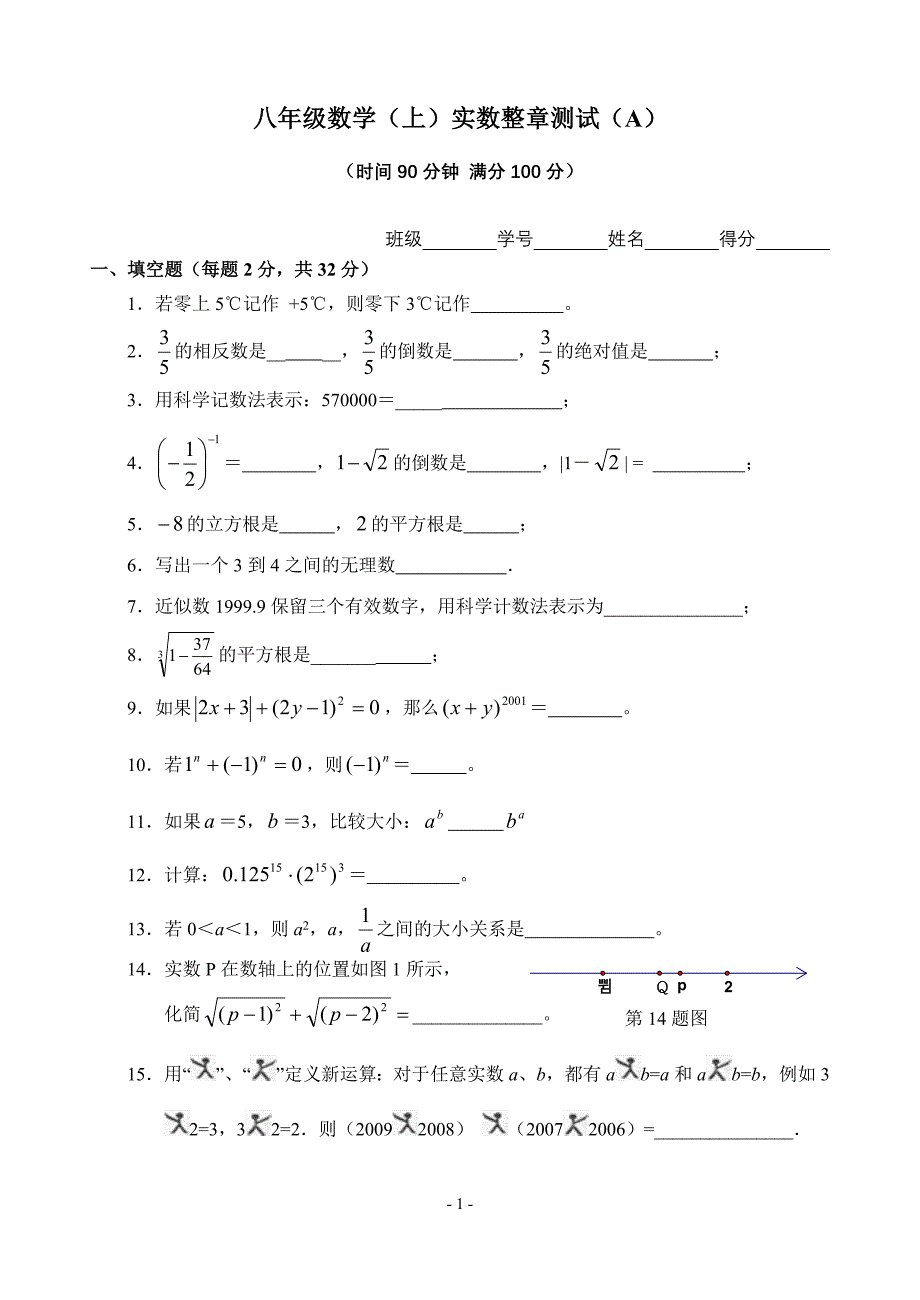 八年级数学（上）实数整章测试（A）
（时间 90 分钟 满分 100 分）
班级________学号________姓名________得分________
一、填空题（每题 2 分，共 32 分）
1．若零上 5℃记作 +5℃，则零下 3℃记作__________。
2．3/5 的相反数是________，3/5 的倒数是_______，3/5 的绝对值是_______；
3．用科学记数法表示：570000＝__________________；
4．(−1/2)^(−1)＝________，1−√2 的倒数是________，|1－√2 | = __________；
5．−8的立方根是______，2的平方根是______；
6．写出一个 3 到 4 之间的无理数____________．
7．近似数 1999.9 保留三个有效数字，用科学计数法表示为_______________；
8．∛(1−37/64) 的平方根是_____________；
9．如果|2x+3|+(2y−1)²=0，那么(x+y)^2001＝________。
10．若1ⁿ+(−1)ⁿ=0，则(−1)ⁿ＝______。
11．如果a＝5，b＝3，比较大小：a^b ______b^a
12．计算：0.125^15·(2^15)^3＝__________。
13．若 0＜a＜1，则 a²，a，1/a 之间的大小关系是______________。
14．实数 P 在数轴上的位置如图 1 所示，
뾤 Q p 2
化简√(p−1)²+√(p−2)²＝______________。
第 14 题图
15．用“”、“”定义新运算：对于任意实数 a、b，都有 a b=a 和 a b=b，例如 3
2=3，3 2=2．则（2009 2008） （2007 2006）=_______________．
- 1 -